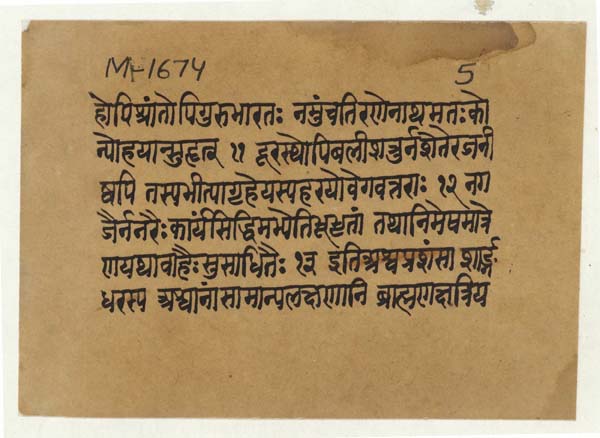 M-1674
5
होपिश्रांतोपिगुरुभारतः नमुंचतिरणेनाथमतःको
न्योहयात्सुहृत् ११ दूरस्थोपिबलीशत्रुर्नशेतेरजनी
ष्वपि तस्यभीत्यागृहेयस्यहरयोवेगवत्तराः १२ नग
जैर्ननरैःकार्यसिद्धिमभ्येति तथानिमेषमात्रे
णयथावाहैःसुसाधितैः १३ इतिअश्वप्रशंसा शार्ङ्ग
धरस्य अश्वानांसामान्यलक्षणानि ब्राह्मणक्षत्रिय